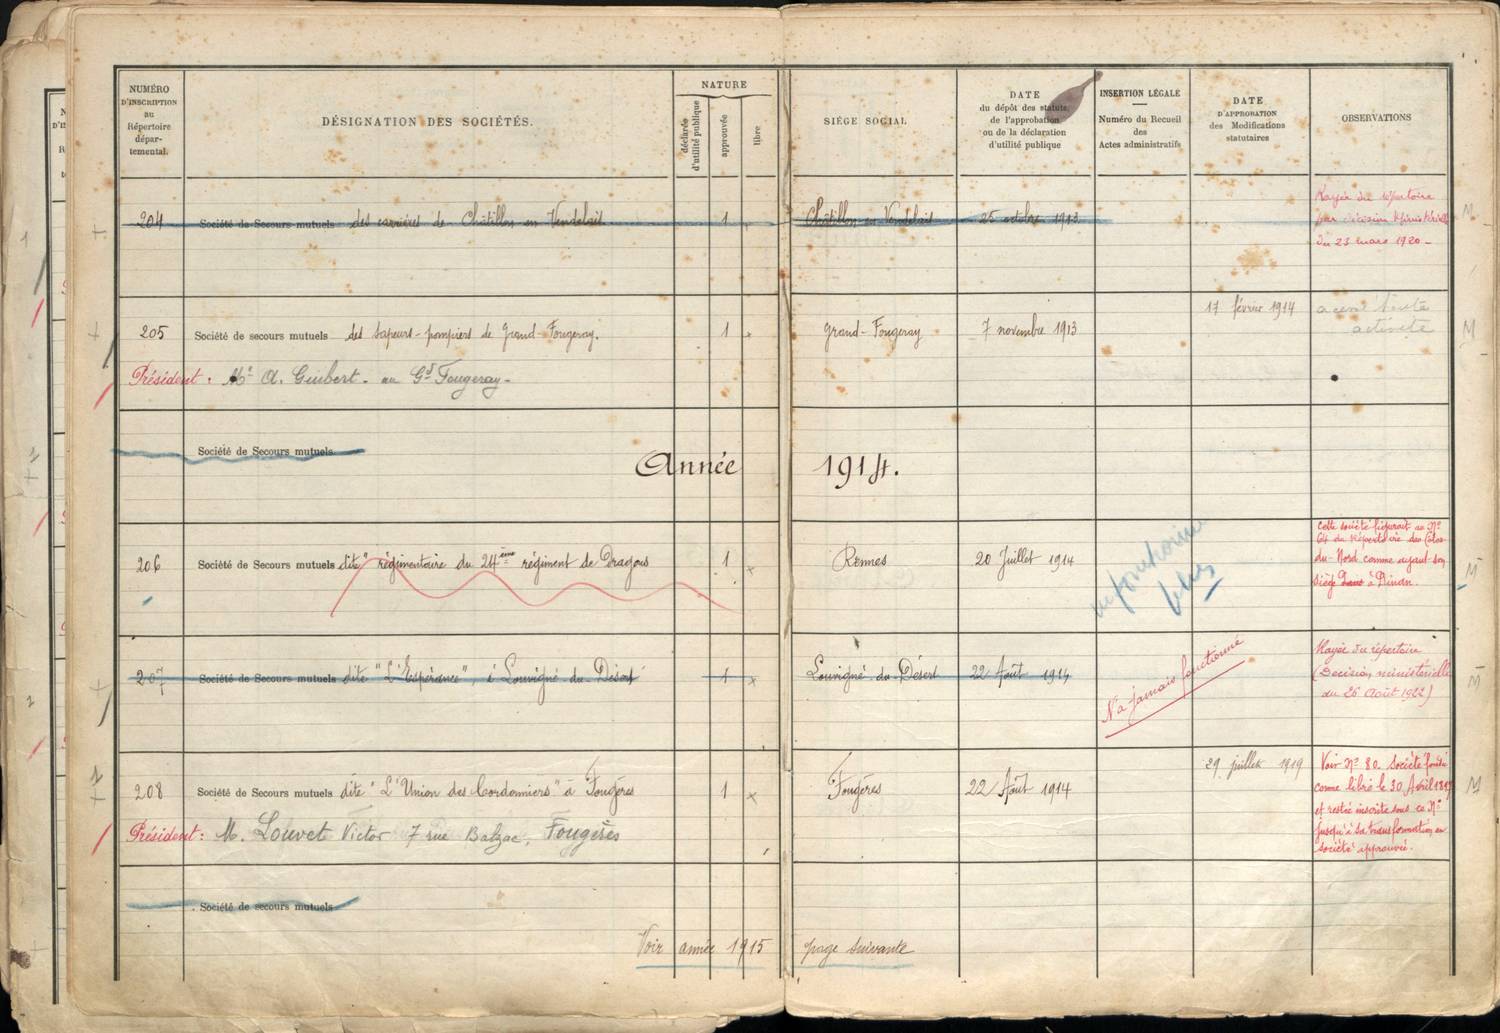 NUMÉRO
D'INSCRIPTION
au
Répertoire
dépar-
temental.
DÉSIGNATION DES SOCIÉTÉS.
NATURE
déclarée
d'utilité publique
approuvée
libre
SIÈGE SOCIAL
DATE
du dépôt des statuts
de l'approbation
ou de la déclaration
d'utilité publique
INSERTION LÉGALE
Numéro du Recueil
des
Actes administratifs
DATE
D'APPROBATION
des Modifications
statutaires
OBSERVATIONS
204 Société de Secours mutuels des carrières de Châtillon en Vendelais 1 Châtillon en Vendelais 25 octobre 1913
Rayée du répertoire
par décision Ministérielle
du 23 mars 1920 -
M
205 Société de secours mutuels des sapeurs-pompiers de Grand-Fougeray. 1 Grand-Fougeray 7 novembre 1913 17 février 1914
activité
M
Président : Mr A. Guibert - au Gd Fougeray -
Société de Secours mutuels
Année 1914.
206 Société de Secours mutuels dite "régimentaire du 24ème régiment de Dragons 1 x Rennes 20 Juillet 1914
plus
Cette société figurait au No
64 du Répertoire des Côtes-
du-Nord comme ayant son
siège à Dinan.
M
207 Société de Secours mutuels dite "L'Espérance", à Louvigné-du-Désert 1 x Louvigné-du-Désert 22 Août 1914
N'a jamais fonctionné
Rayée du répertoire
(Décision ministérielle
du 26 Août 1922)
M
208 Société de Secours mutuels dite "L'Union des Cordonniers" à Fougères 1 x Fougères 22 Août 1914 29 juillet 1919
Voir No 80. Société fondée
comme libre le 30 Avril
et restée inscrite sous ce No
jusqu'à sa transformation en
société approuvée.
M
Président : M. Louvet Victor 7 rue Balzac, Fougères
Société de secours mutuels
Voir année 1915 page suivante